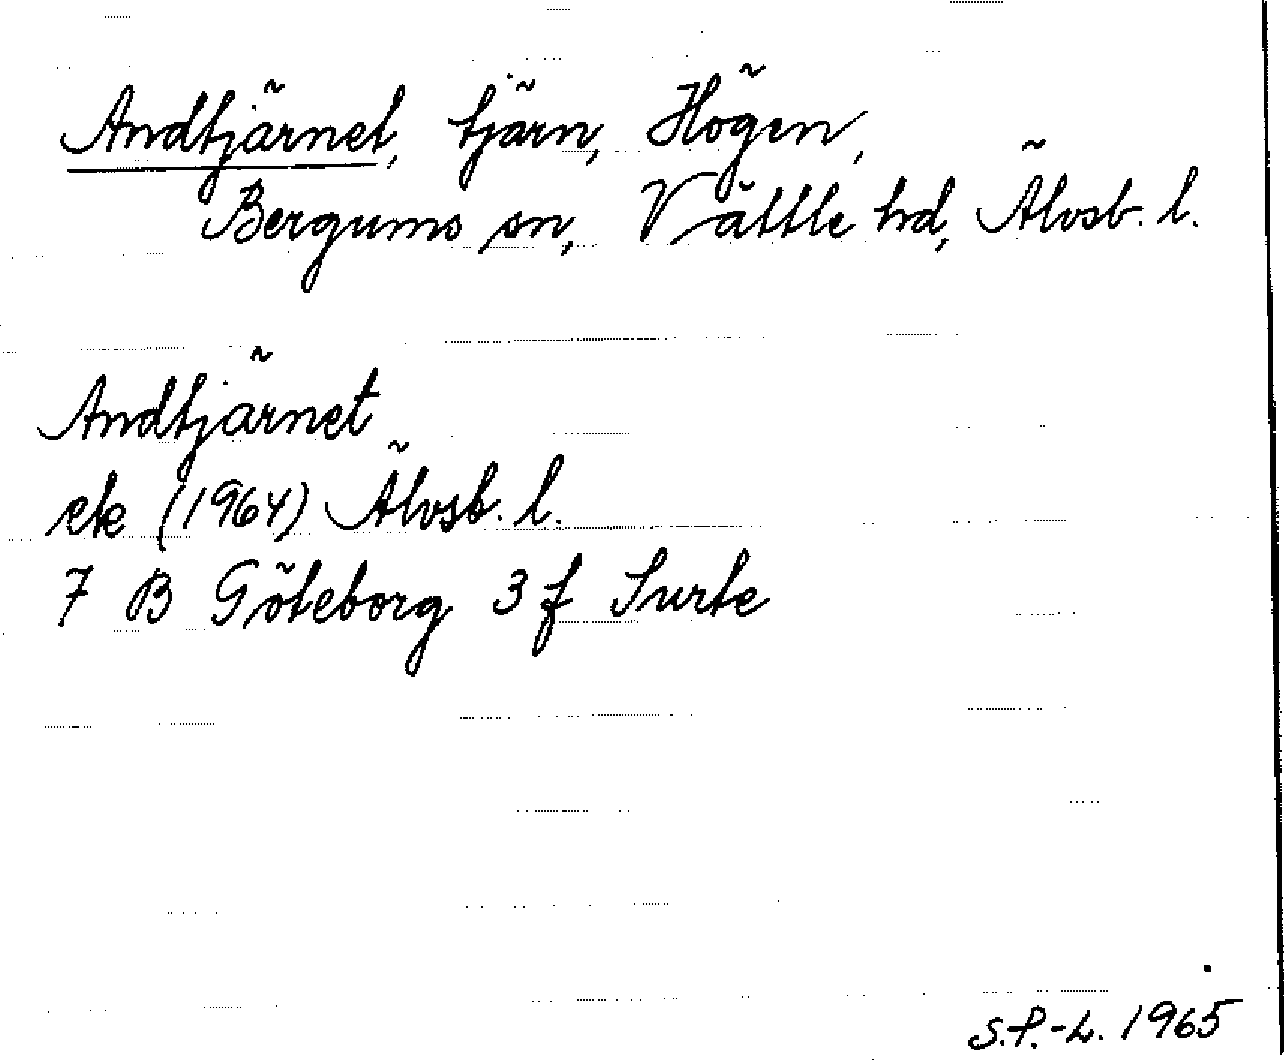 Andtjärnet, tjärn, Högen,
Bergums sn, Vättle hd, Älvsb. l.
Andtjärnet
ek (1964) Älvsb. l.
7 B Göteborg 3 f Surte
S.P.-L. 1965